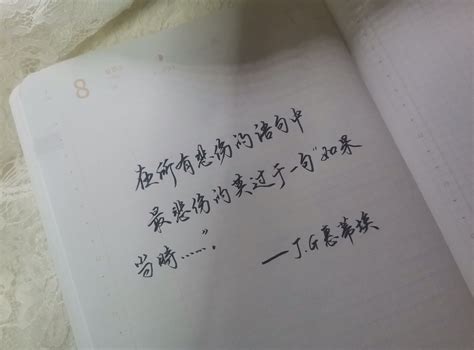 8
在所有悲伤的语句中
最悲伤的莫过于一句“如果
当时……”。
—J.G惠蒂埃